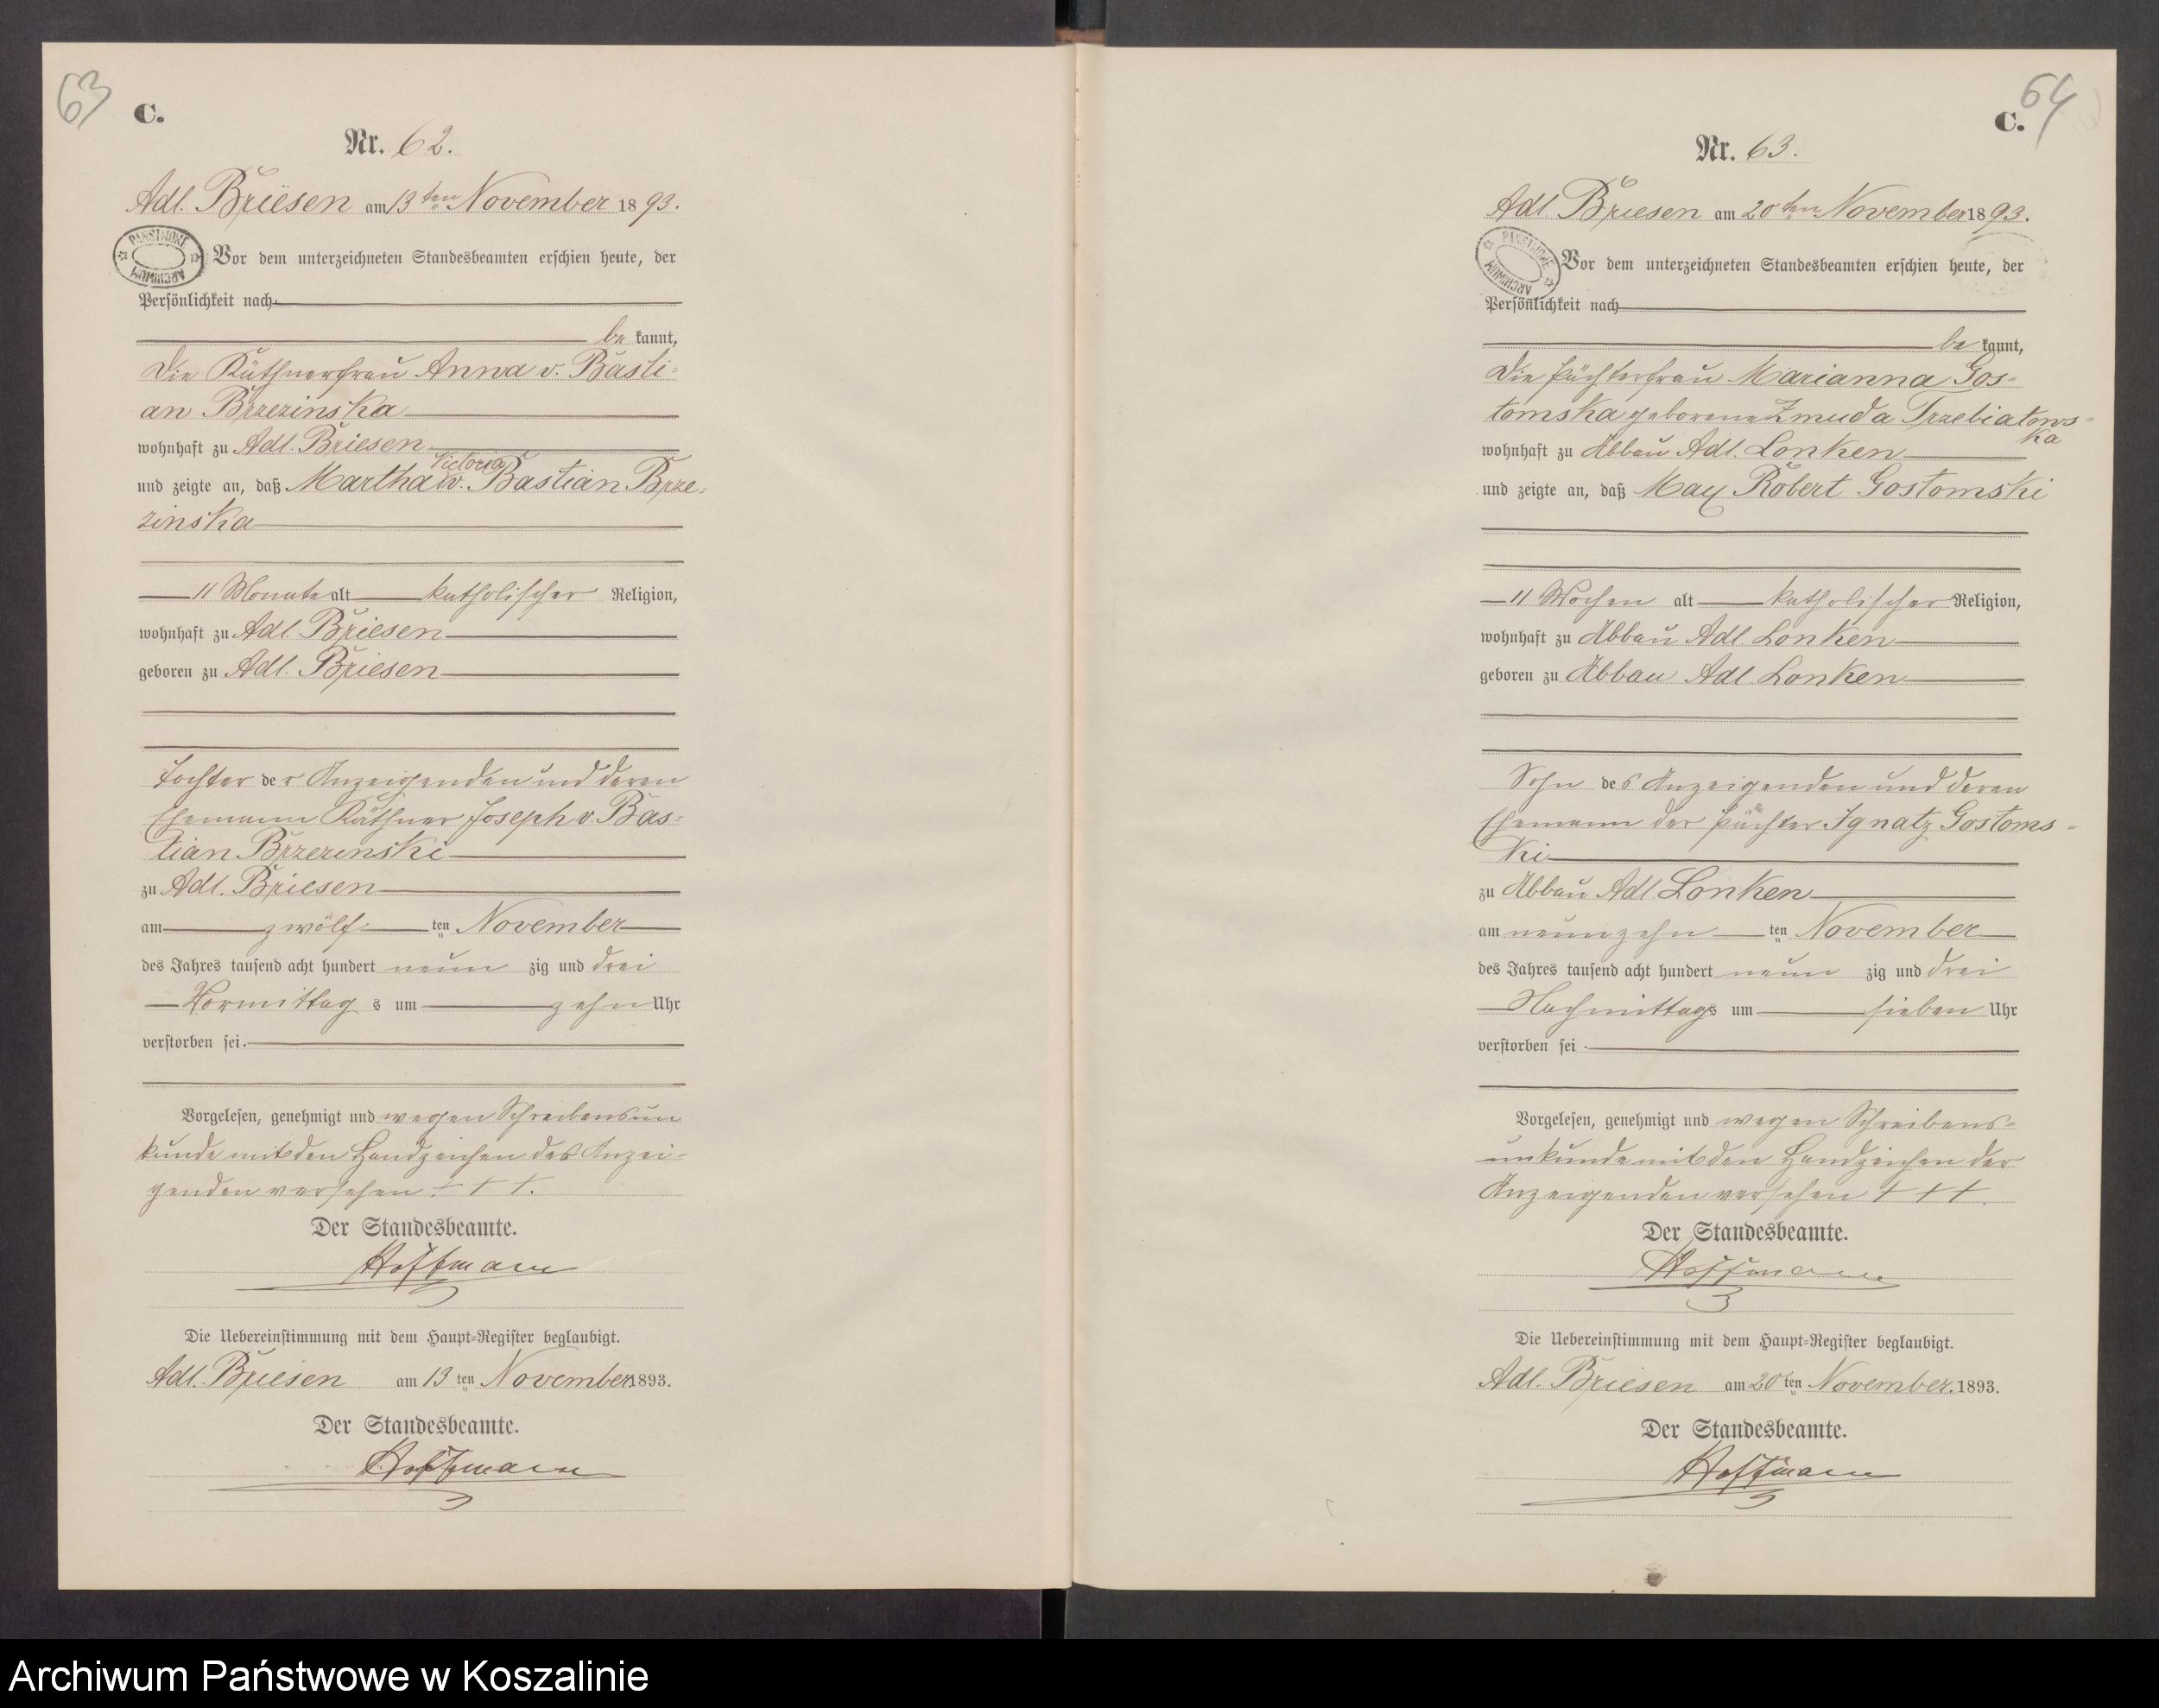 63
C.
Nr. 62.
Adl. Briesen am 13ten November 1893.
PAŃSTWOWE ARCHIWUM
Vor dem unterzeichneten Standesbeamten erschien heute, der
Persönlichkeit nach
be kannt,
die Käthnerfrau Anna v. Basti=
an Brzezinska
wohnhaft zu Adl. Briesen
Victoria
und zeigte an, daß Martha v. Bastian Brze=
zinska
11 Monate alt katholischer Religion,
wohnhaft zu Adl. Briesen
geboren zu Adl. Briesen
Tochter der Anzeigenden und deren
Ehemann Käthner Joseph v. Bas=
tian Brzezinski
zu Adl. Briesen
am zwölf ten November
des Jahres tausend acht hundert neun zig und drei
Vormittag s um zehn Uhr
verstorben sei.
Vorgelesen, genehmigt und wegen Schreibensun
kunde mit den Handzeichen des Anzei=
genden versehen. + + +.
Der Standesbeamte.
Hoffmann
Die Uebereinstimmung mit dem Haupt=Register beglaubigt.
Adl. Briesen am 13ten November 1893.
Der Standesbeamte.
Hoffmann
64
C.
Nr. 63.
Adl. Briesen am 20ten November 1893.
PAŃSTWOWE ARCHIWUM
Vor dem unterzeichneten Standesbeamten erschien heute, der
Persönlichkeit nach
be kannt,
die Pächterfrau Marianna Gos=
tomska geborene Zmuda Trzebiatows=
ka
wohnhaft zu Abbau Adl. Lonken
und zeigte an, daß Max Robert Gostomski
11 Wochen alt katholischer Religion,
wohnhaft zu Abbau Adl. Lonken
geboren zu Abbau Adl. Lonken
Sohn des Anzeigenden und deren
Ehemann der Pächter Ignatz Gostoms=
ki
zu Abbau Adl. Lonken
am neunzehn ten November
des Jahres tausend acht hundert neun zig und drei
Nachmittags um sieben Uhr
verstorben sei.
Vorgelesen, genehmigt und wegen Schreibens=
unkunde mit den Handzeichen der
Anzeigenden versehen + + +.
Der Standesbeamte.
Hoffmann
Die Uebereinstimmung mit dem Haupt=Register beglaubigt.
Adl. Briesen am 20ten November. 1893.
Der Standesbeamte.
Hoffmann
Archiwum Państwowe w Koszalinie